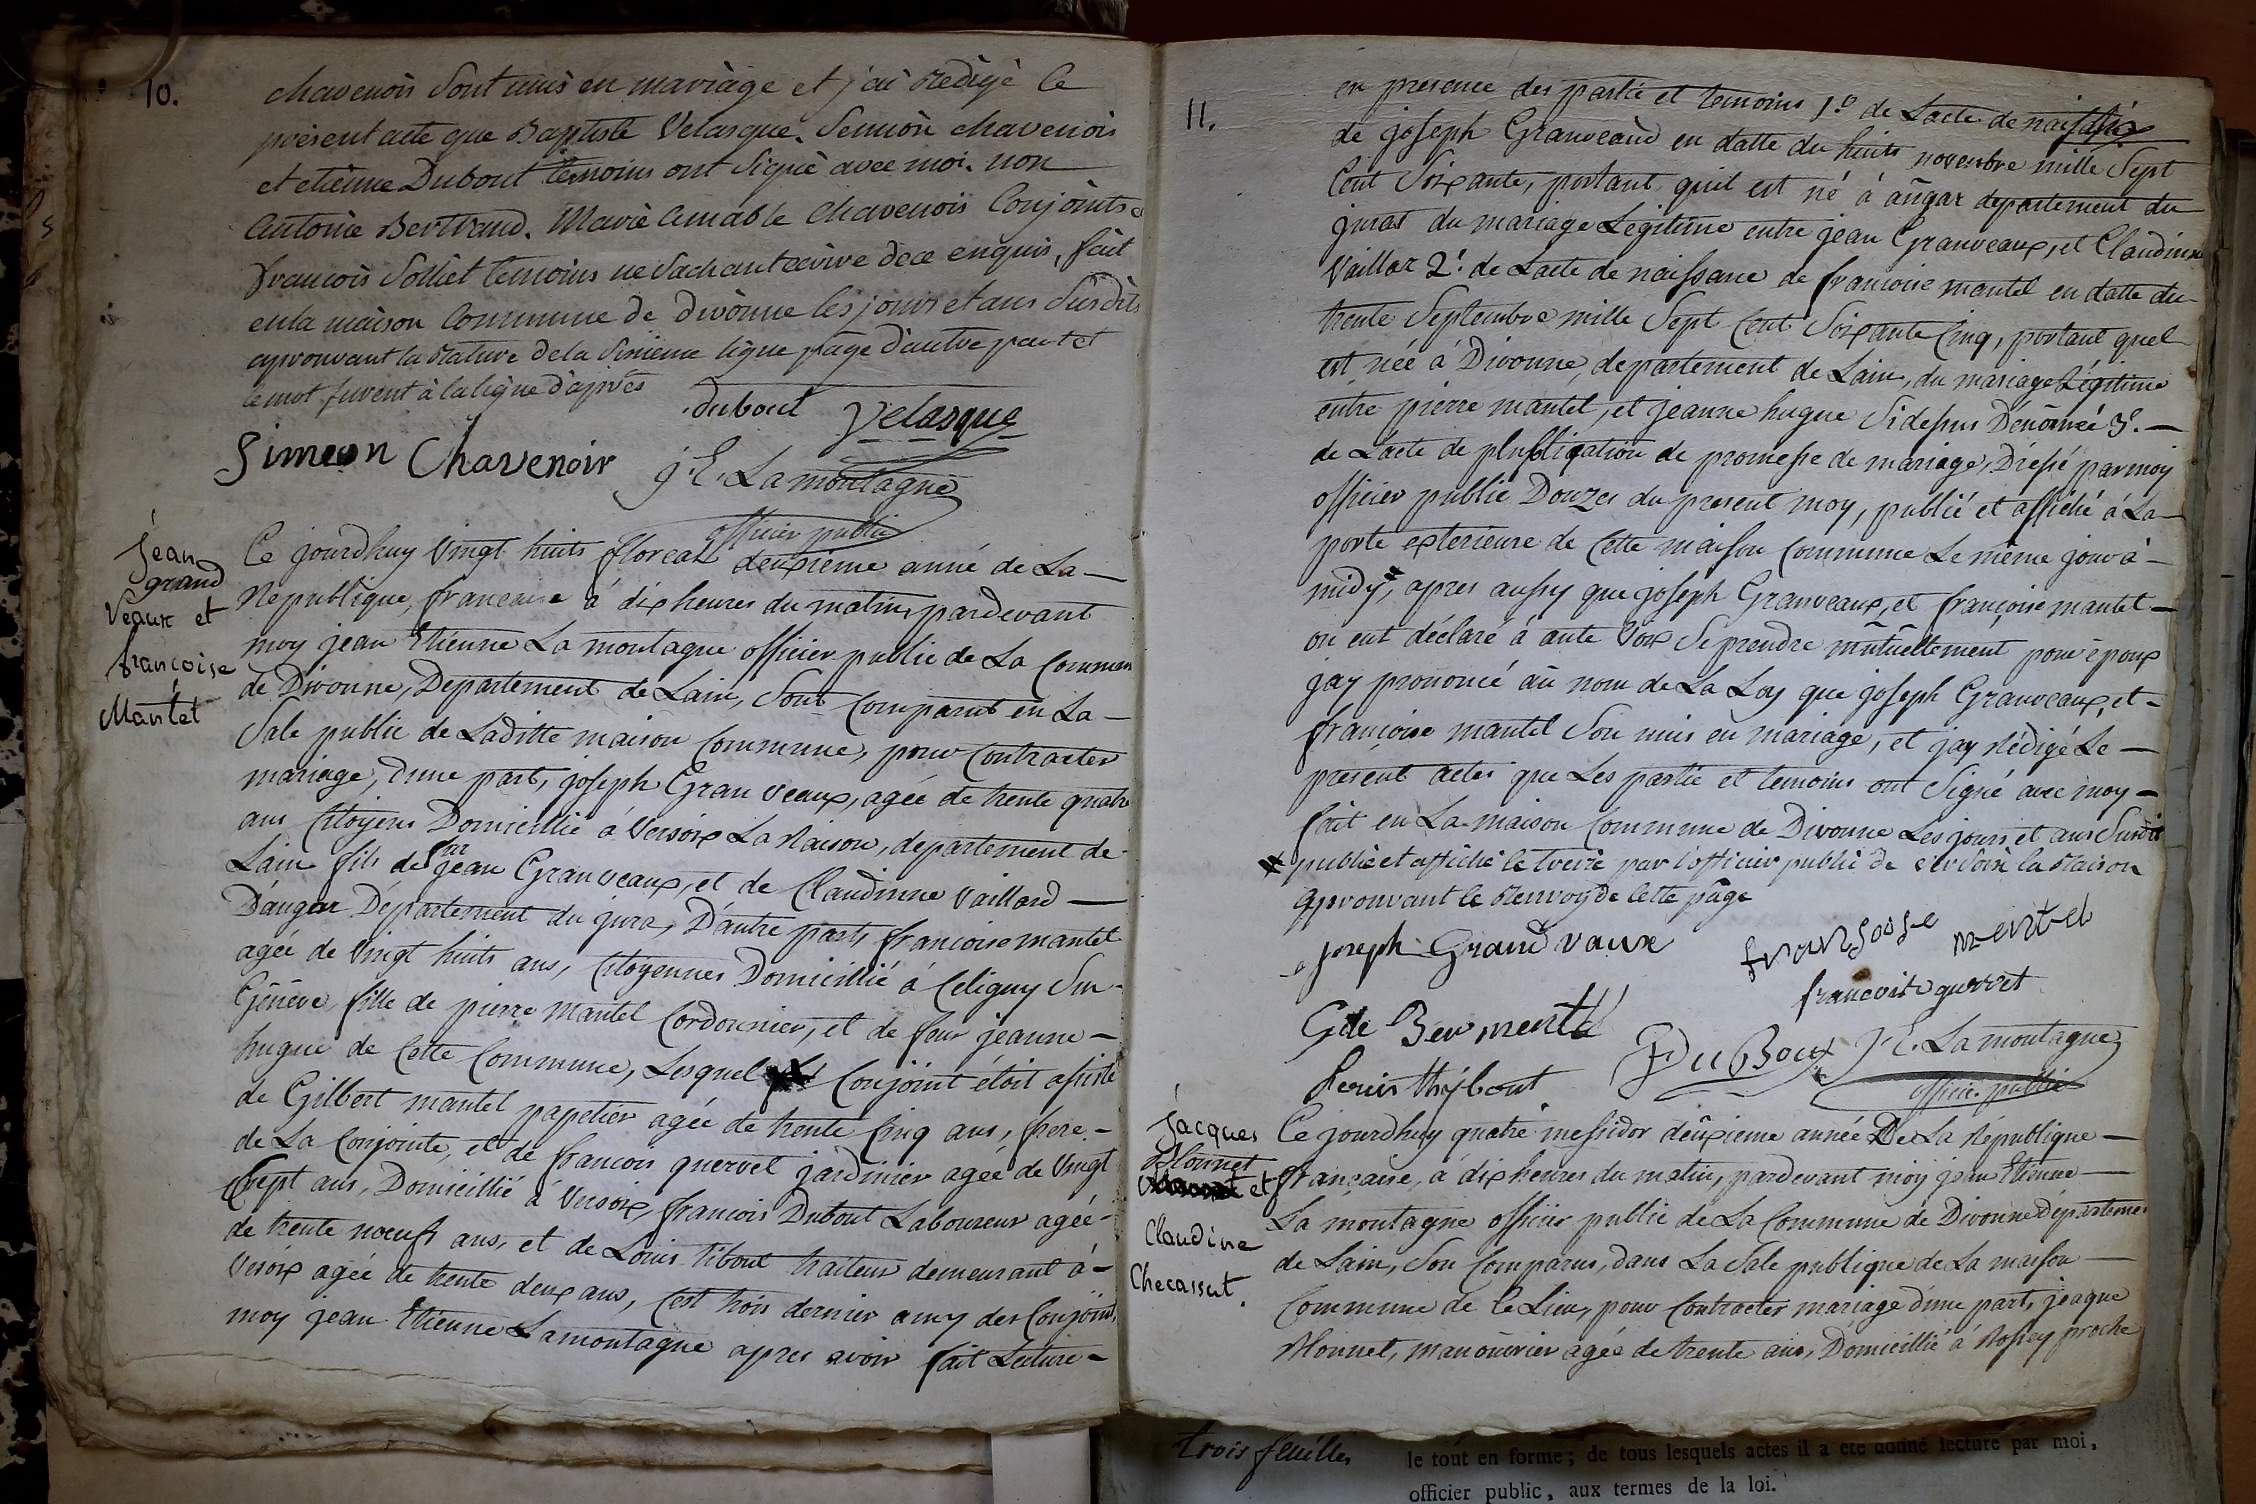 10.
chavenois sont unis en mariage et j'ai redigé le
présent acte que Baptiste Velasque. Simeon chavenois
et etiènne Dubout temoins ont signé avec moi. non
Antoine Bertrand. Marie aimable Chavenois Conjoints
françois Solliet temoins ne sachant ecrire de ce enquis, fait
en la maison Commune de divonne les jours et ans susdits
approuvant la rature de la sixieme ligne page d'autre part et
le mot furent à la ligne d'après
dubout Velasque
Simeon Chavenoir J. E. Lamontagne
officier public
jean
grand
Veaux et
françoise
Mantet
Ce jourdhuy vingt huits floreal deuxième anné de La
Republique, francaise à dix heures du matin, pardevant
moy jean Etienne La montagne officier public de La Commun
de Divonne, Departement de Lain, Sont Comparut en La
Sale public de Laditte maison Commune, pour Contracter
mariage, dune part, joseph Gran veaux, agée de trente quatre
ans Citoyens Domicillié à Versoix La Raison, departement de
Lain fils de feu jean Granveaux, et de Claudinne Vaillard
D'augar Département du jura, D'autre part, francoise mantel
agée de Vingt huits ans, Citoyennes Domicillié à Celigny Sur
Génève, fille de pierre Mantel Cordonnier, et de feur jeanne
hugue de Cette Commune, Lesquel Conjoint étoit assisté
de Gilbert mantel papetier agée de trente Cinq ans, frere
de La Conjointe, et de francois quervel jardinier agée de Vingt
Sept ans, Domicillié à Versoix, francois Dubout Laboureur agée
de trente noeufs ans, et de Louis tibout traiteur demeurant à
Versoix agée de trente deux ans, cest trois dernier amy des Conjoint,
moy jean Etienne Lamontagne apres avoir fait Lecture
11.
en presence des partie et temoins 1.º de Lacte de naissance
de joseph Granveaud en datte du huits novembre mille Sept
Cent Soixante, portant quil est né à augar departement du
juras du mariage Légitime entre jean Granveaux, et Claudinne
Vaillar 2.º de Lacte de naissance de francoise mantel en datte du
trente Septembre mille Sept Cent Soixante Cinq, portant quel
est née à Divonne, departement de Lain, du mariage Légitime
entre pierre mantel, et jeanne hugue Sidessus Dénomée 3.
de Lacte de plubligation de promesse de mariage, Dressé par moy
officier public Douzes du present moy, publié et affiché à La
porte exterieure de Cette maison Commune Le mème jour à
midy, apres aussy que joseph Granveaux, et françoise mantel
on eut déclaré à aute Voix Se prendre mutuellement pour époux
jay prononcé au nom de La Loy que joseph Granveaux, et
françoise mantel Son unis en mariage, et jay rédigé Le
présent actes que Les partie et temoins ont Signé avec moy
fait en La maison Commune de Divonne Les jours et ans Susdit
publié et affiché le treize par l'officier public de versoix la Raison
approuvant le renvoy de cette page
joseph Grand vaux fransoise mentel
francois guervet
Gile Ber mentel
Du Bout J. E. La montagne
Louis thybout officier public
jacques
Monnet
et
Claudine
Checassut.
Ce jourdhuy quatre messidor deuxieme année De La République
française, à dix heures du matin, pardevant moy jean Etienne
La montagne officier public de La Commune de Divonne Departemen
de Lain, Son Comparus, dans La Sale publique de La maison
Commune de Ce Lieu, pour Contracter mariage d'une part, jeaque
Monnet, manouvrier agée de trente ans, Domicillié à Rossey proche
trois feuilles
le tout en forme; de tous lesquels actes il a été donné lecture par moi,
officier public, aux termes de la loi.